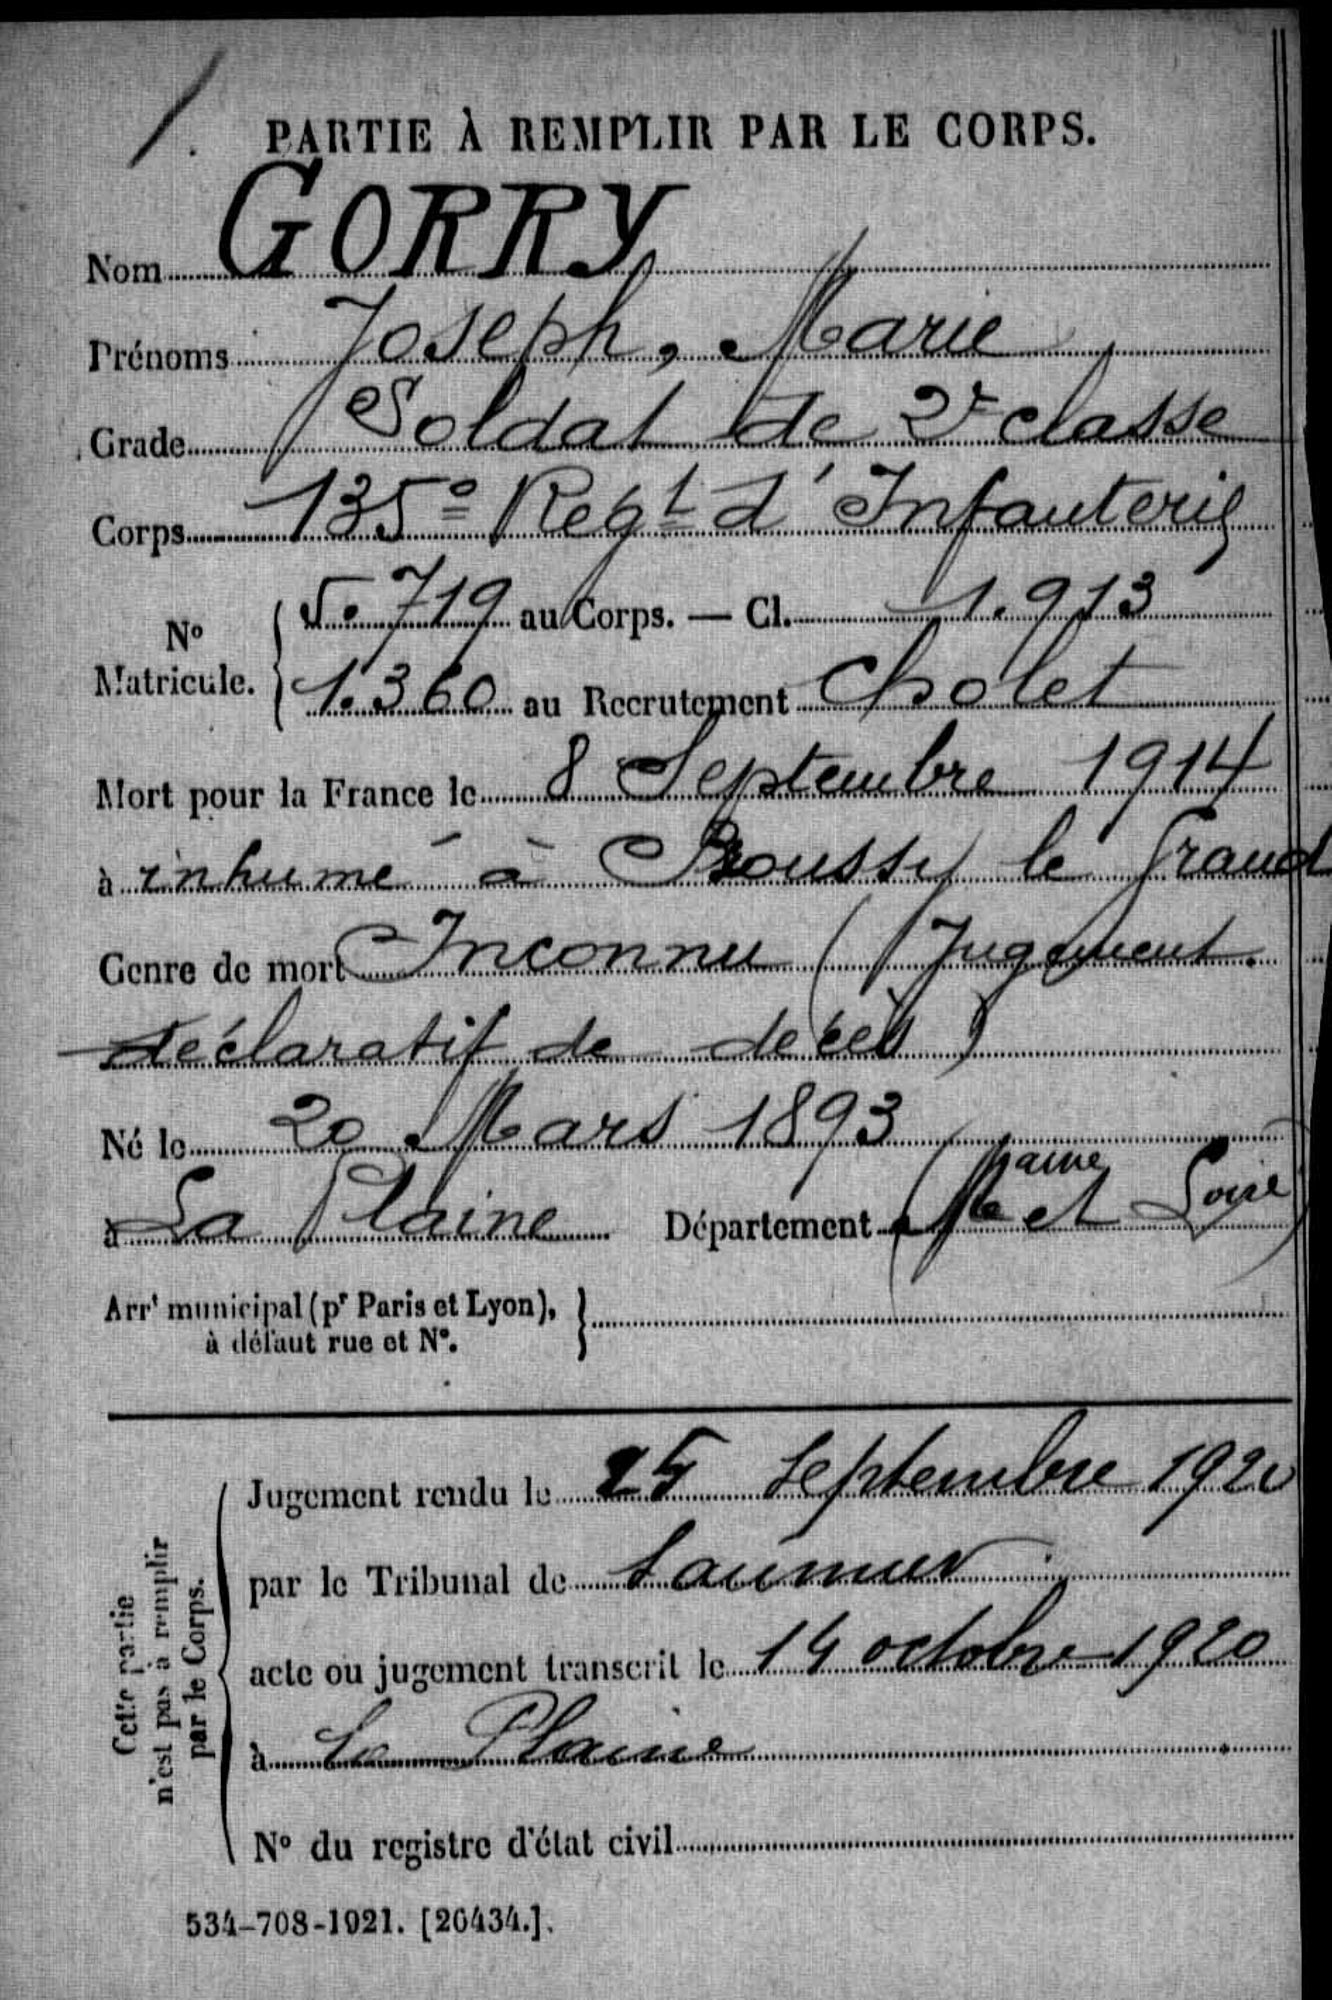 PARTIE À REMPLIR PAR LE CORPS.
Nom GORRY
Prénoms Joseph, Marie
Grade Soldat de 2e classe
Corps 135e Regt d'Infanterie
No Matricule. 5.719 au Corps. — Cl. 1.913
1.360 au Recrutement Cholet
Mort pour la France le 8 Septembre 1914
à inhumé à le Grand
Genre de mort Inconnu (Jugement
déclaratif de décès)
Né le 20 Mars 1893
à La Plaine Département (Maine et Loire)
Arrt municipal (pr Paris et Lyon),
à défaut rue et No.
Cette partie
n'est pas à remplir
par le Corps.
Jugement rendu le 25 septembre 1920
par le Tribunal de Saumur
acte ou jugement transcrit le 14 octobre 1920
à La Plaine
No du registre d'état civil
534-708-1921. [26434.].